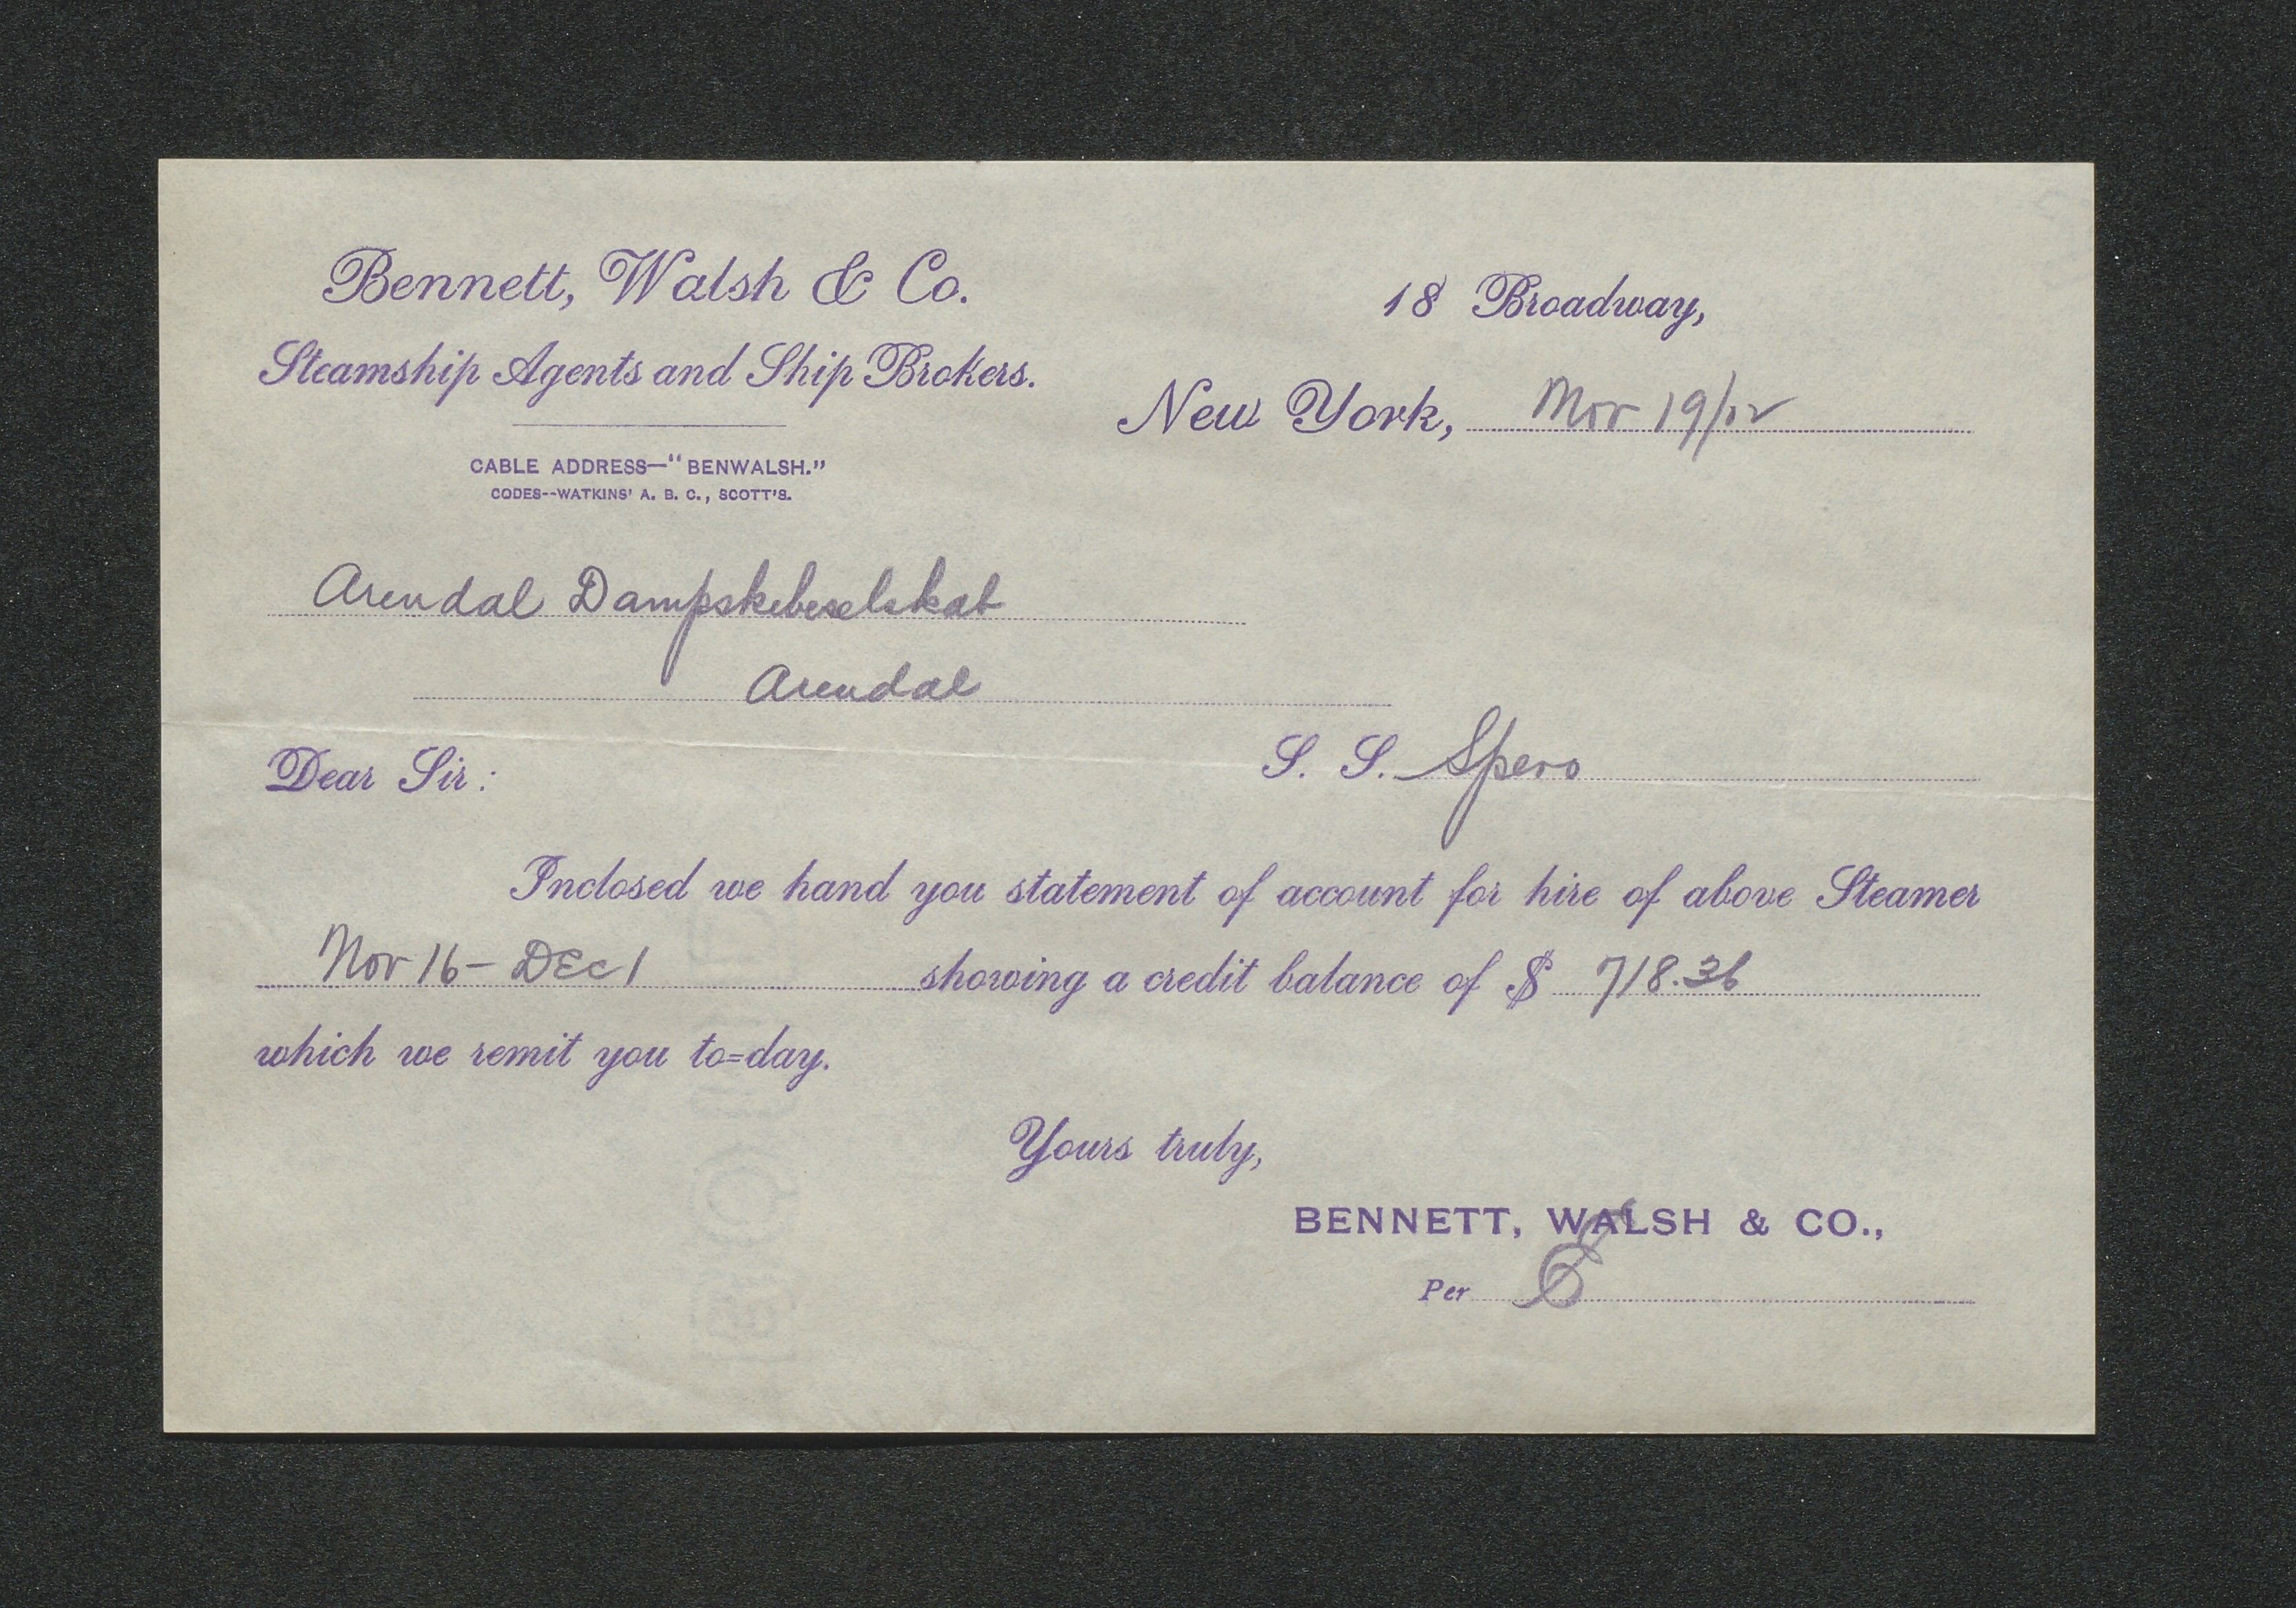 Bennett, Walsh & Co.
Steamship Agents and Ship Brokers.
CABLE ADDRESS—"BENWALSH."
CODES--WATKINS' A. B. C., SCOTT'S.
18 Broadway,
New York, Nov 19/02
Arendal Dampskibeselskab
Arendal
Dear Sir:
S. S. Spero
Inclosed we hand you statement of account for hire of above Steamer
Nov 16 - DEc 1 showing a credit balance of $ 718.36
which we remit you to=day.
Yours truly,
BENNETT, WALSH & CO.,
Per